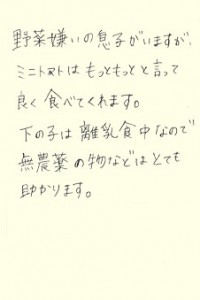 野菜嫌いの息子がいますが、
ミニトマトはもっともっとと言って
良く食べてくれます。
下の子は離乳食中なので
無農薬の物などはとても
助かります。